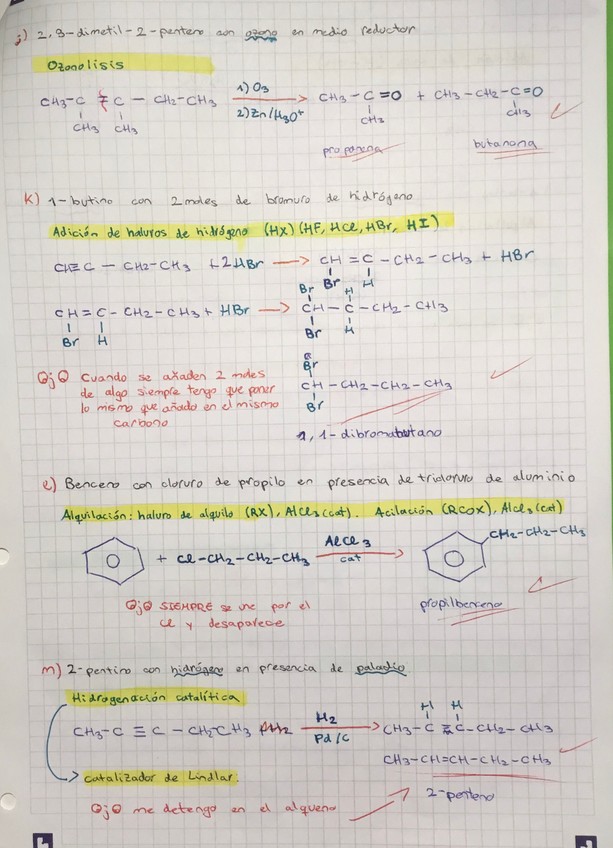 j) 2,3-dimetil-2-penteno con ozono en medio reductor
Ozonolisis
CH3-C = C - CH2-CH3 1) O3 2) Zn/H3O+ → CH3-C=O + CH3-CH2-C=O
CH3 CH3 CH3 CH3
propanona butanona
K) 1-butino con 2 moles de bromuro de hidrógeno
Adición de haluros de hidrógeno (HX) (HF, HCl, HBr, HI)
CH≡C - CH2-CH3 + 2HBr → CH = C - CH2 - CH3 + HBr
Br H
CH = C - CH2-CH3 + HBr → CH - C - CH2 - CH3
Br H
Br H
Br H
Ojo Cuando se añaden 2 moles
de algo siempre tengo que poner
lo mismo que añado en el mismo
carbono
Br
CH - CH2-CH2-CH3
Br
1,1-dibromobutano
l) Benceno con cloruro de propilo en presencia de tricloruro de aluminio
Alquilación: haluro de alquilo (RX), AlCl3 (cat). Acilación (RCOX), AlCl3 (cat)
+ Cl-CH2-CH2-CH3 AlCl3 cat → CH2-CH2-CH3
Ojo SIEMPRE se une por el
Cl y desaparece
propilbenceno
m) 2-pentino con hidrógeno en presencia de paladio
Hidrogenación catalítica
H H
CH3-C ≡ C - CH2CH3 H2 Pd/C → CH3-C = C-CH2-CH3
CH3-CH=CH-CH2-CH3
catalizador de Lindlar:
2-penteno
Ojo me detengo en el alqueno